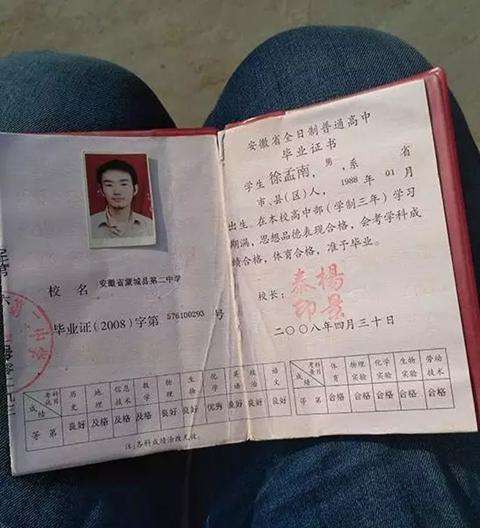 校 名 安徽省蒙城县第二中学
毕业证(2008)字第 576100293 号
考试科目 成绩 历史 地理 信息技术 数学 物理 生物 化学 英语 政治 语文
等 第 良好 及格 及格 及格 良好 良好 优秀 良好 良好 良好
注:各科成绩涂改无效
安徽省全日制普通高中
毕业证书
学生 徐孟南, 男 ,系 省
市、县(区)人, 1988 年 01 月
出生。在本校高中部(学制三年)学习
期满,思想品德表现合格,会考学科成
绩合格,体育合格,准予毕业。
校长:
二〇〇八年四月三十日
考查科目 成绩 体育 物理实验 化学实验 生物实验 劳动技术
等 第 合格 合格 合格 合格 合格